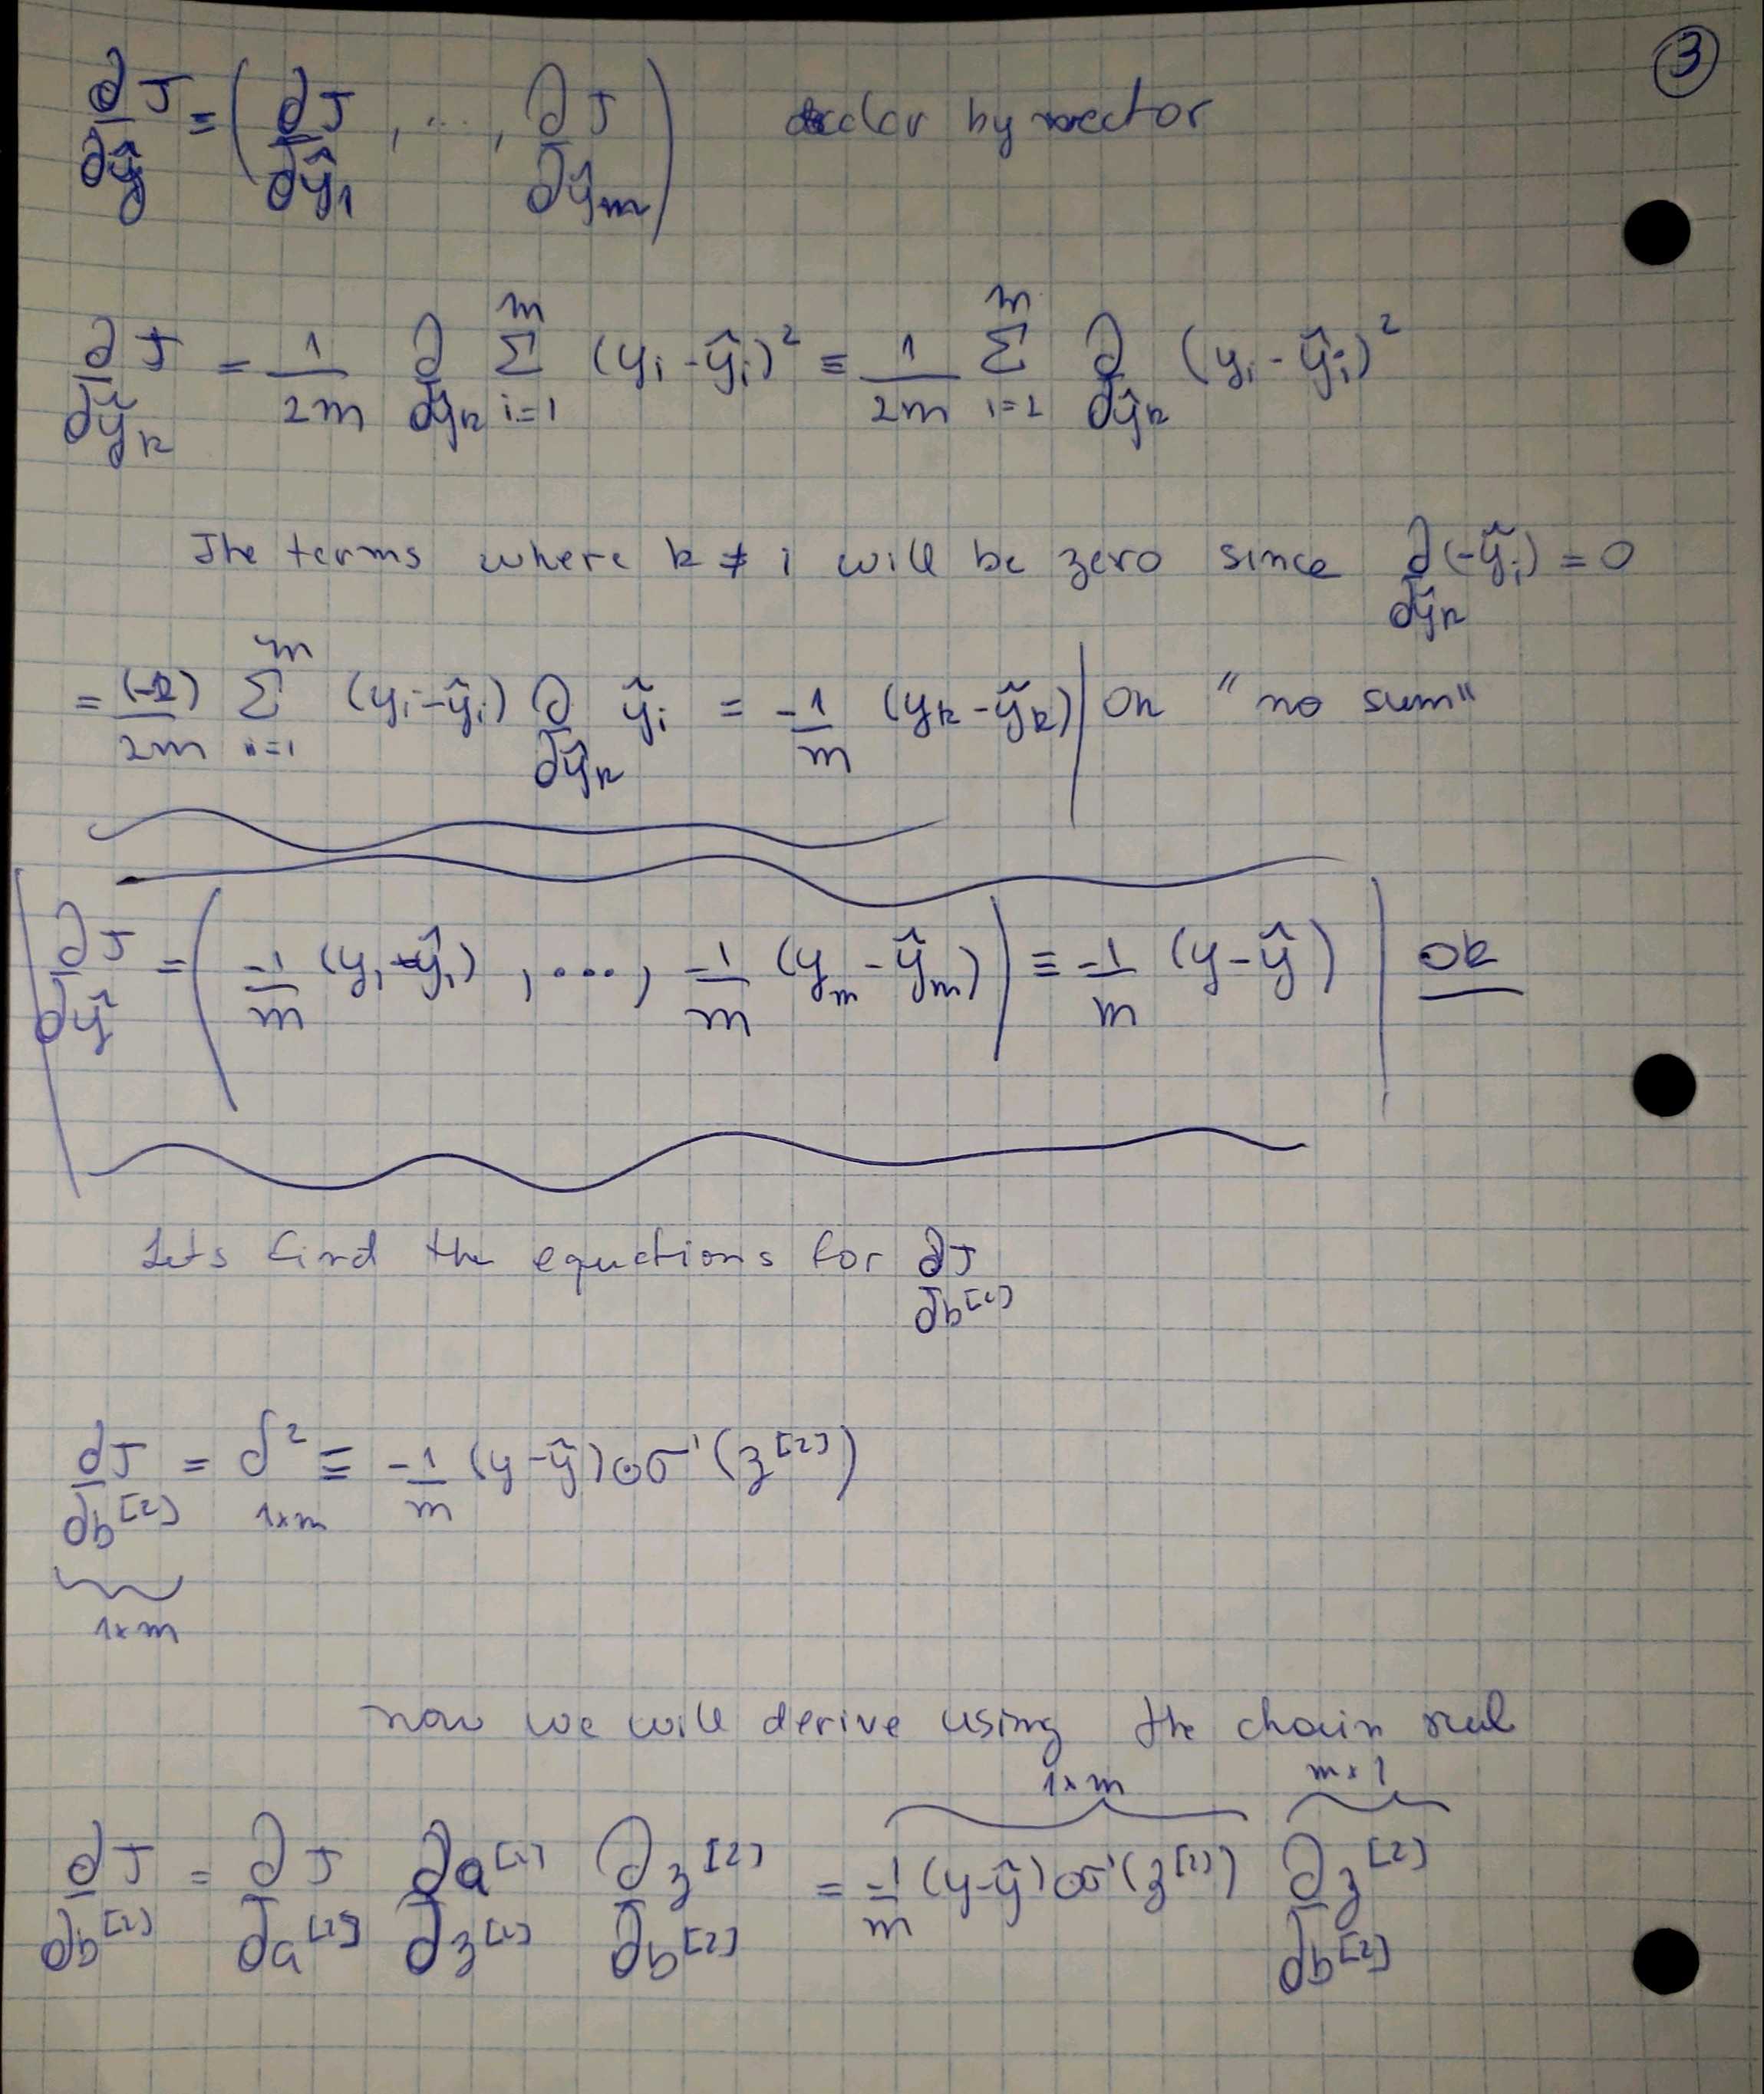 ③
∂J/∂ŷ = (∂J/∂ŷ₁, ..., ∂J/∂ŷₘ) by vector
∂J/∂ŷₖ = 1/2m ∂/∂ŷₖ Σᵢ₌₁ᵐ (yᵢ - ŷᵢ)² = 1/2m Σᵢ₌₁ᵐ ∂/∂ŷₖ (yᵢ - ŷᵢ)²
The terms where k ≠ i will be zero since ∂(-ŷᵢ)/∂ŷₖ = 0
= (-2)/2m Σᵢ₌₁ᵐ (yᵢ - ŷᵢ) ∂/∂ŷₖ ŷᵢ = -1/m (yₖ - ŷₖ) | Ok "no sum"
∂J/∂ŷ = (-1/m (y₁ - ŷ₁), ..., -1/m (yₘ - ŷₘ)) ≡ -1/m (y - ŷ) | ok
Lets find the equations for ∂J/∂b[2]
∂J/∂b[2] = δ² ≡ -1/m (y - ŷ) ⊙ σ'(z[2])
1×m
1×m
now we will derive using the chain rul
1×m m×1
∂J/∂b[2] = ∂J/∂a[2] ∂a[2]/∂z[2] ∂z[2]/∂b[2] = -1/m (y - ŷ) ⊙ σ'(z[2]) ∂z[2]/∂b[2]